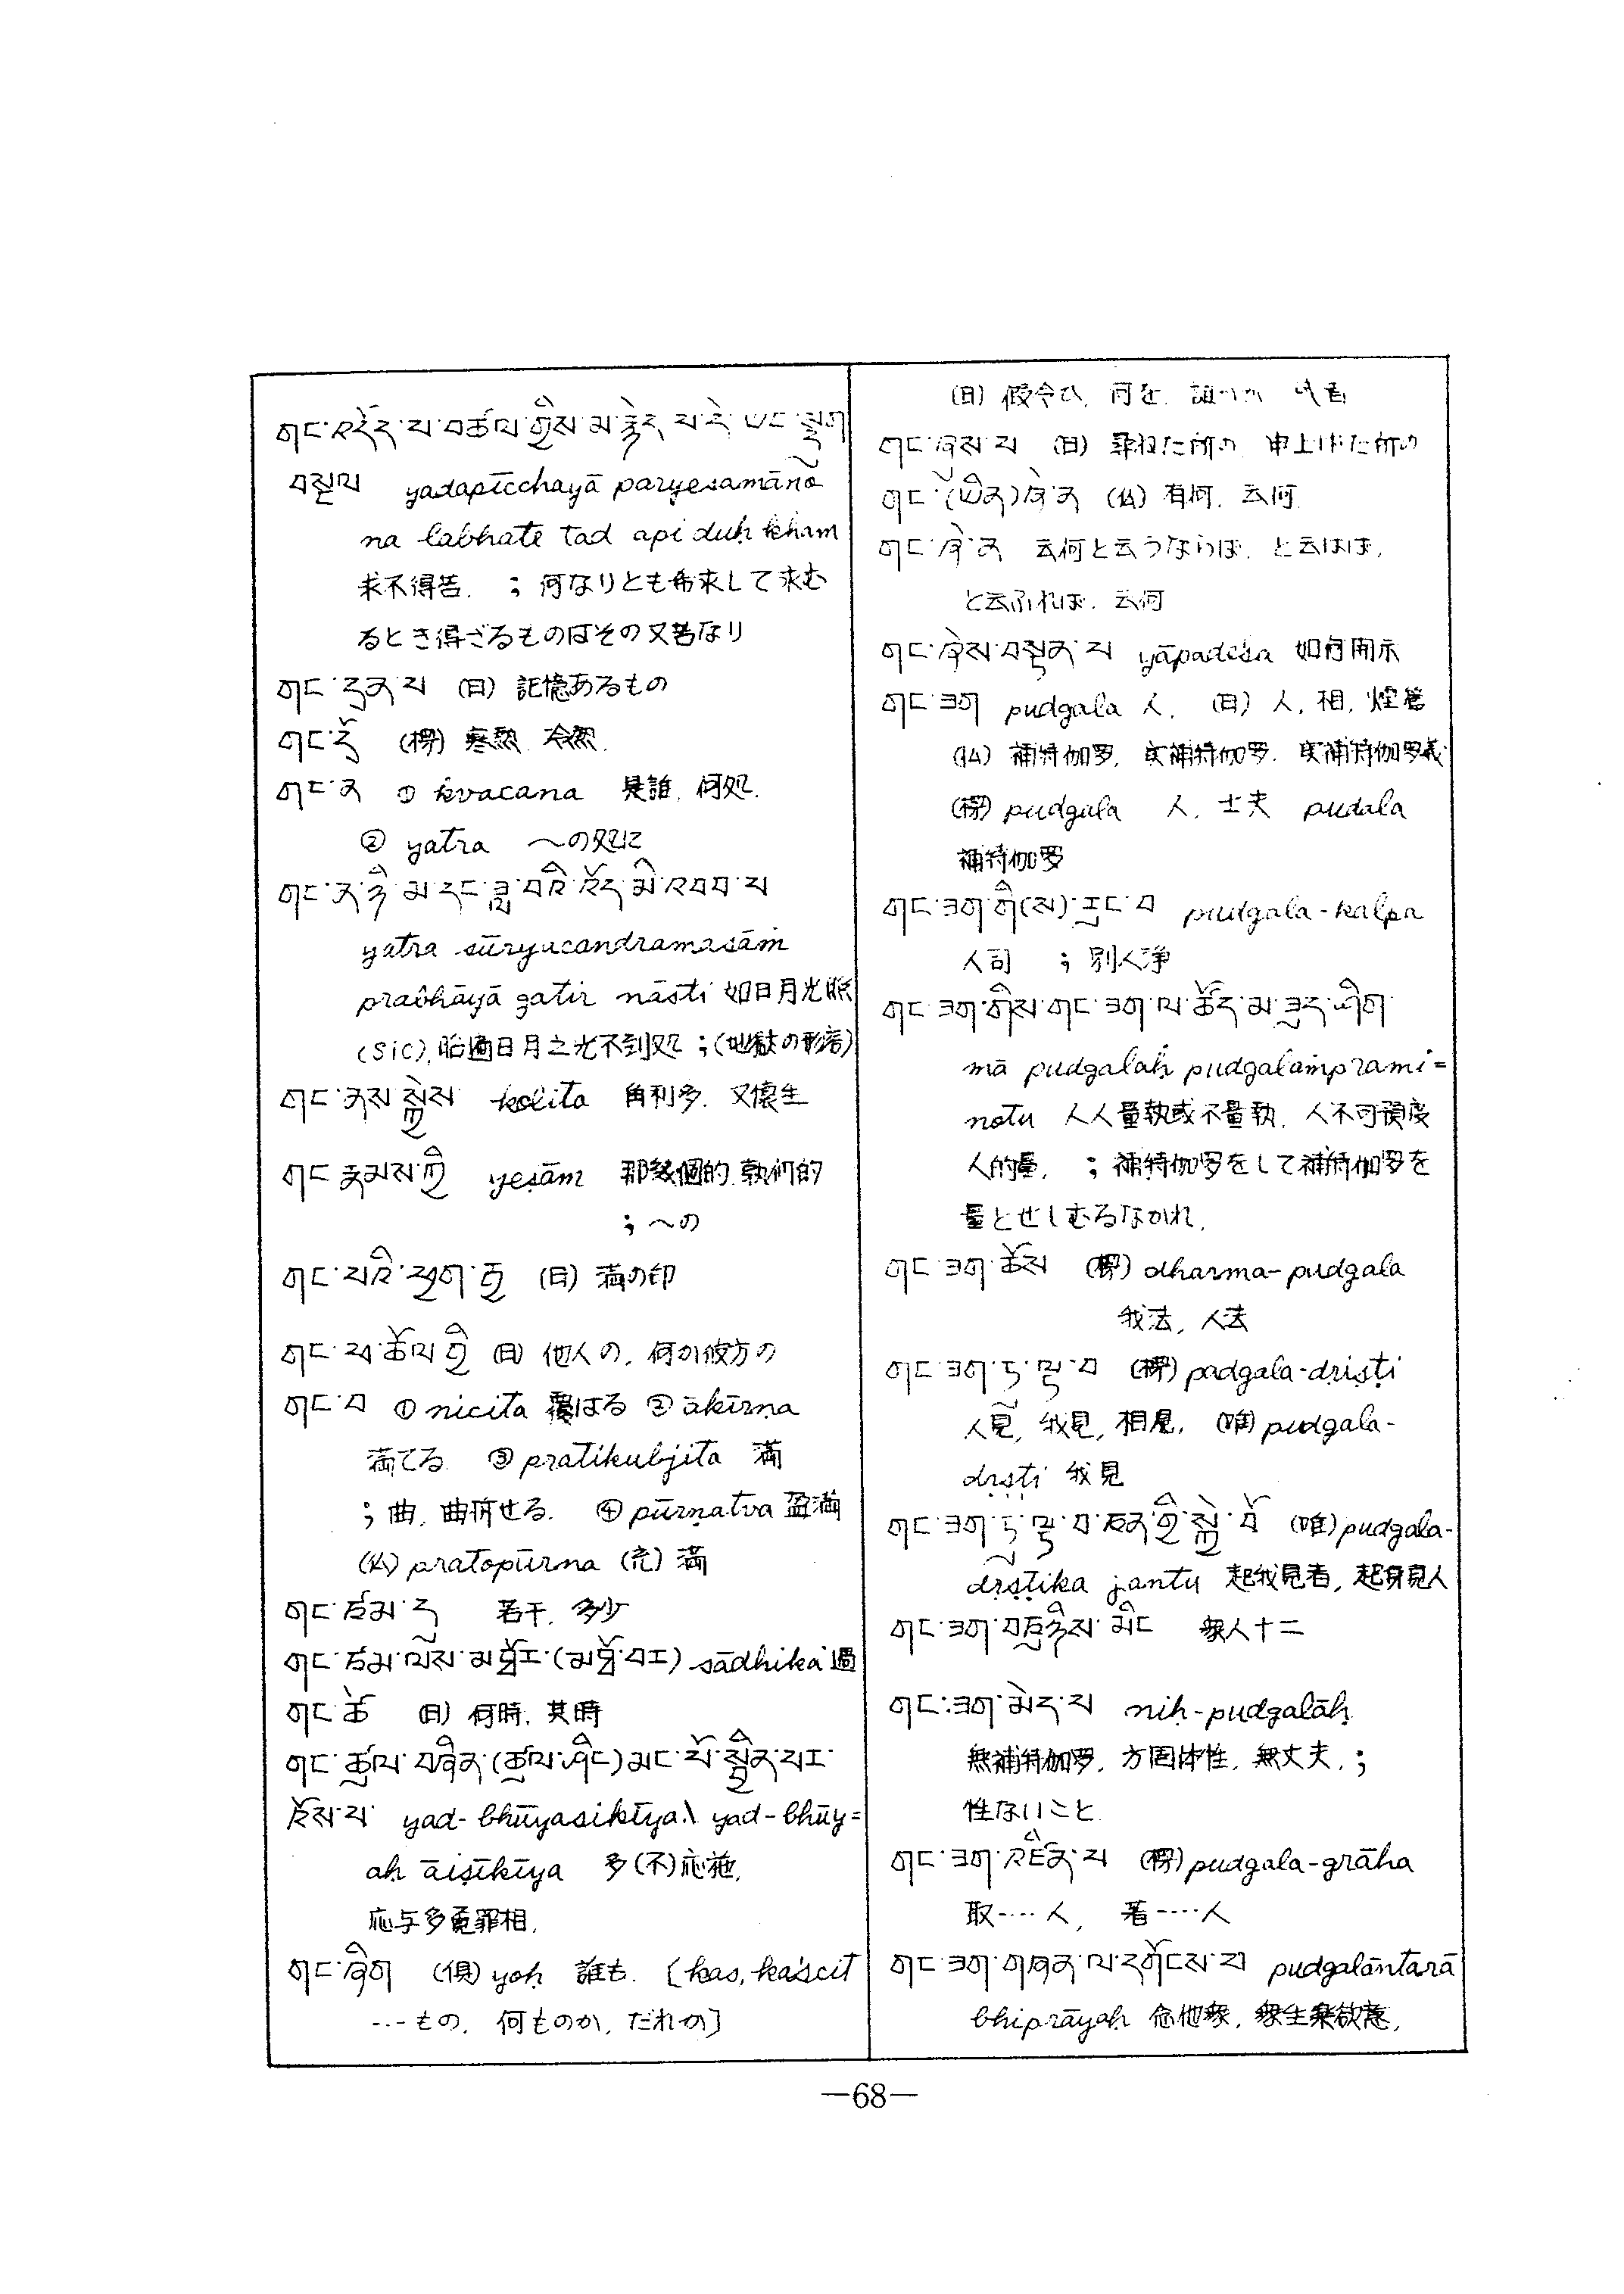 གང་འདོད་པ་བཙལ་གྱིས་མ་རྙེད་པ་དེ་ཡང་སྡུག
བསྔལ yadapīcchayā paryeṣamāṇo
na labhate tad api duḥkham
求不得苦. ; 何なりとも希求して求む
るとき得ざるものはその又苦なり
གང་དྲན་པ (日) 記憶あるもの
གང་དྲོ (梻) 寒熱. 冷熱.
གང་ན ① kvacana 是誰. 何処.
② yatra 〜の処に
གང་ན་ཉི་མ་དང་ཟླ་བའི་འོད་མི་འབབ་པ
yatra sūryacandramasāṁ
prabhāyā gatir nāsti 如日月光照
(sic), 胎過日月之光不到処 ; (地獄の形容)
གང་ནས་སྐྱེས kolita 拘利多. 又懐生
གང་རྣམས་ཀྱི yeṣām 那幾個的.執何的
; 〜の
གང་བའི་ཕྱག་རྒྱ (日) 満の印
གང་ཕ་རོལ་གྱི (日) 他人の. 何か彼方の
གང་བ ① nicita 覆はる ② ākīrṇa
満てる. ③ pratikubjita 満
; 曲. 曲折せる. ④ pūrṇatva 盈満
(仏) pratopūrna (充) 満
གང་ཙམ་ན 若干. 多少
གང་ཙམ་ལས sādhika 過
གང་ཚེ (日) 何時. 其時
གང་ཚུལ་བཞིན་(ཚུལ་ཤིང)མང་པོ་སྦྱིན་པར་
འོས་པ yad-bhūyasikīya.\ yad-bhūy=
aḥ āiṣīkīya 多(不)応施.
応与多覓罪相.
གང་ཞིག (倶) yaḥ 誰も. [kas, kaścit
---もの. 何ものか. だれか]
(日) 假令ひ. 何を.
གང་ཞུས་པ (日) 尋ねた所の 申上げた所の
གང་(ཡིན)ཞེ་ན (仏) 有何. 云何.
གང་ཞེ་ན 云何と云うならば. と云はば.
と云ふれば. 云何
གང་ཞེས་བསྟན་པ yāpadeśa 如何開示
གང་ཟག pudgala 人. (日) 人. 相. 煙管
(仏) 補特伽罗. 実補特伽罗. 実補特伽罗義
(梻) pudgala 人. 士夫 pudala
補特伽罗
གང་ཟག་གི(ས)་རུང་བ pudgala-kalpa
人司 ; 別人浄
གང་ཟག་གིས་གང་ཟག་ལ་ཚོད་མ་ཟུང་ཤིག
mā pudgalaḥ pudgalaṁprami=
notu 人人量執或不量執. 人不可預度
人的量. ; 補特伽罗をして補特伽罗を
量とせしむるなかれ.
གང་ཟག་ཆོས (梻) dharma-pudgala
我法, 人法
གང་ཟག་ཏུ་ལྟ་བ (梻) padgala-dṛiṣṭi
人見, 我見, 相見. (唯) pudgala-
dṛṣṭi 我見
གང་ཟག་ཏུ་ལྟ་བ་ཅན་གྱི་སྐྱེ་བོ (唯) pudgala-
dṛṣṭika jantu 起我見者, 起身見人
གང་ཟག་བཅུ་ཉིས་མིང 衆人十二
གང་ཟག་མེད་པ niḥ-pudgalāḥ
無補特伽罗. 方固体性. 無丈夫. ;
性ないこと.
གང་ཟག་འཛིན་པ (梻) pudgala-grāha
取---- 人, 著---- 人
གང་ཟག་གཞན་ལ་དགོངས་པ pudgalāntarā
bhiprāyaḥ 念他衆. 衆生楽欲意.
—68—